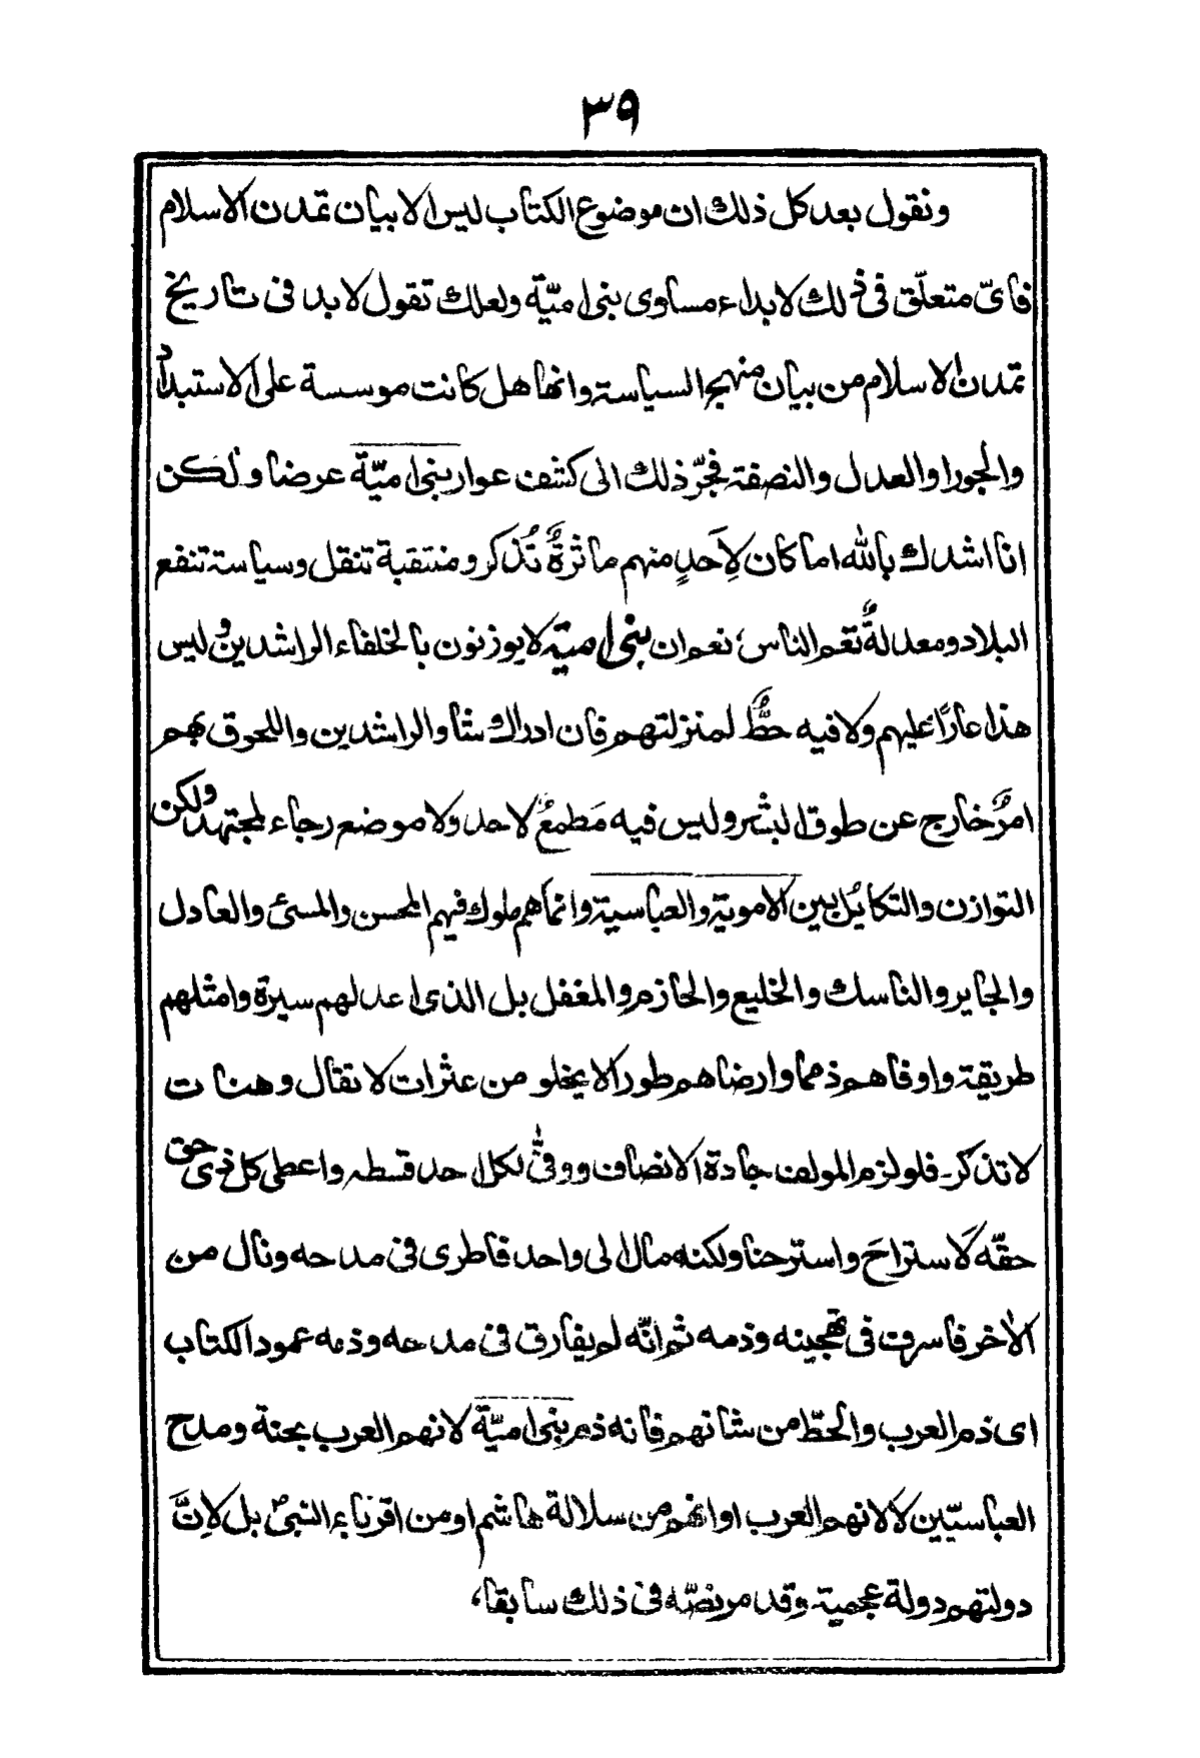 ٣٩
ونقول بعد كل ذلك ان موضوع الكتاب ليس الا بيان تمدن الاسلام
فاىّ متعلّق فى ذلك لابداء مساوى بنى اميّة ولعلك تقول لابد فى تاريخ
تمدن الاسلام من بيان منهج السياسة وانها هل كانت موسسة على الاستبداد
والجور او العدل والنصفة فجرّ ذلك الى كشف عوار بنى اميّة عرضا ولكن
انا اشدك بالله اما كان لِاَحدٍ منهم ماثرةٌ تُذكر ومنتقبة تنقل وسياسة تنفع
البلاد ومعدلةٌ تعم الناس؛ نعم ان بنى امية لا يوزنون بالخلفاء الراشدين وليس
هذا عارًا عليهم ولا فيه حطٌّ لمنزلتهم فان ادراك شاو الراشدين واللحوق بهم
امرٌ خارج عن طوق البشر وليس فيه مَطمعٌ لاحد ولا موضع رجاء لمجتهد ولكن
التوازن والتكايُل بين الاموية والعباسية وانما هم ملوك فيهم المحسن والمسئ والعادل
والجاير والناسك والخليع والحازم والمغفل بل الذى اعدلهم سيرة وامثلهم
طريقة واوفاهم ذمما وارضاهم طورا لا يخلو من عثرات لا تقال وهنات
لا تذكر۔ فلو لزم المولف جادة الانصاف ووفىّ لكل احد قسطه واعطى كل ذى حق
حقّه لَاستراحَ واسترحنا ولكنه مال الى واحد فاطرى فى مدحه ونال من
الاٰخر فاسرف فى تهجينه وذمه ثم انّه لم يفارق فى مدحه وذمه عمود الكتاب
اى ذم العرب والحطّ من شانهم فانه ذم بنى اميّة لانهم العرب بحتة ومدح
العباسيّين لا لانهم العرب او انهم من سلالة هاشم او من اقرباء النبىؐ بل لِانَّ
دولتهم دولة عجمية۔ وقد مر نصّه فى ذلك سابقا،